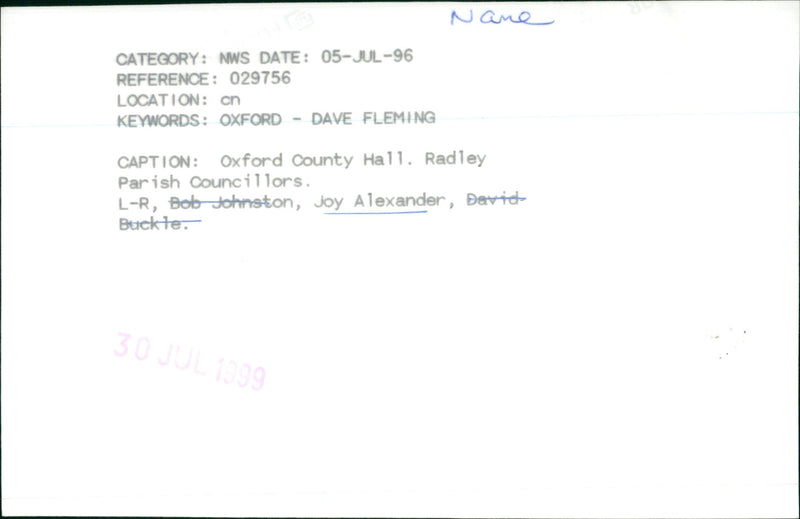 Name
CATEGORY: NWS DATE: 05-JUL-96
REFERENCE: 029756
LOCATION: cn
KEYWORDS: OXFORD - DAVE FLEMING
CAPTION: Oxford County Hall. Radley
Parish Councillors.
L-R, Bob Johnston, Joy Alexander, David
Buckle.
30 JUL 1999